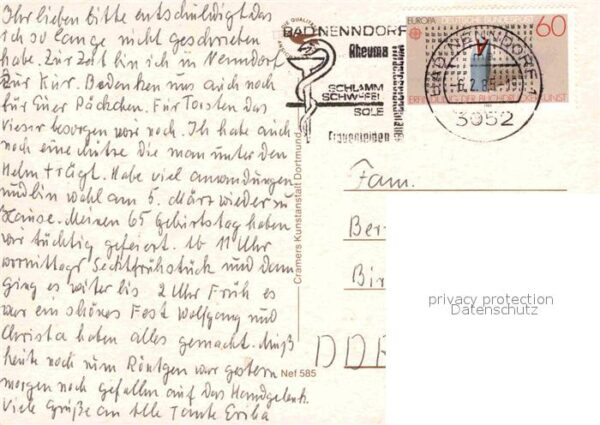 Ihr lieben bitte entschuldigt das
ich so lange nicht geschrieben
habe. Zur Zeit bin ich in Nenndorf
zur Kur. Bedanken uns auch noch
für Euer Päckchen. Für Torsten das
Visier besorgen wir noch. Ich habe auch
noch eine Mütze die man unter den
Helm trägt. Habe viel anwendungen
und bin wohl am 5. März wieder zu
Hause. Meinen 65 Geburtstag haben
wir tüchtig gefeiert. Ab 11 Uhr
vormittags Sektfrühstück und dann
ging es weiter bis 2 Uhr Früh es
war ein schönes Fest Wolfgang und
Christa haben alles gemacht. Muß
heute noch zum Röntgen war gestern
morgen noch gefallen auf das Handgelenk.
Viele Grüße an Alle Tante
Cramers Kunstanstalt Dortmund
Nef 585
BAD NENNDORF
Rheuma
SCHLAMM
SCHWEFEL
SOLE
Frauenleiden
EUROPA DEUTSCHE BUNDESPOST
60
ERFINDUNG DER BUCHDRUCKERKUNST
BAD NENNDORF 1
3052
Fam.
Ber
Bir
DDR
privacy protection
Datenschutz